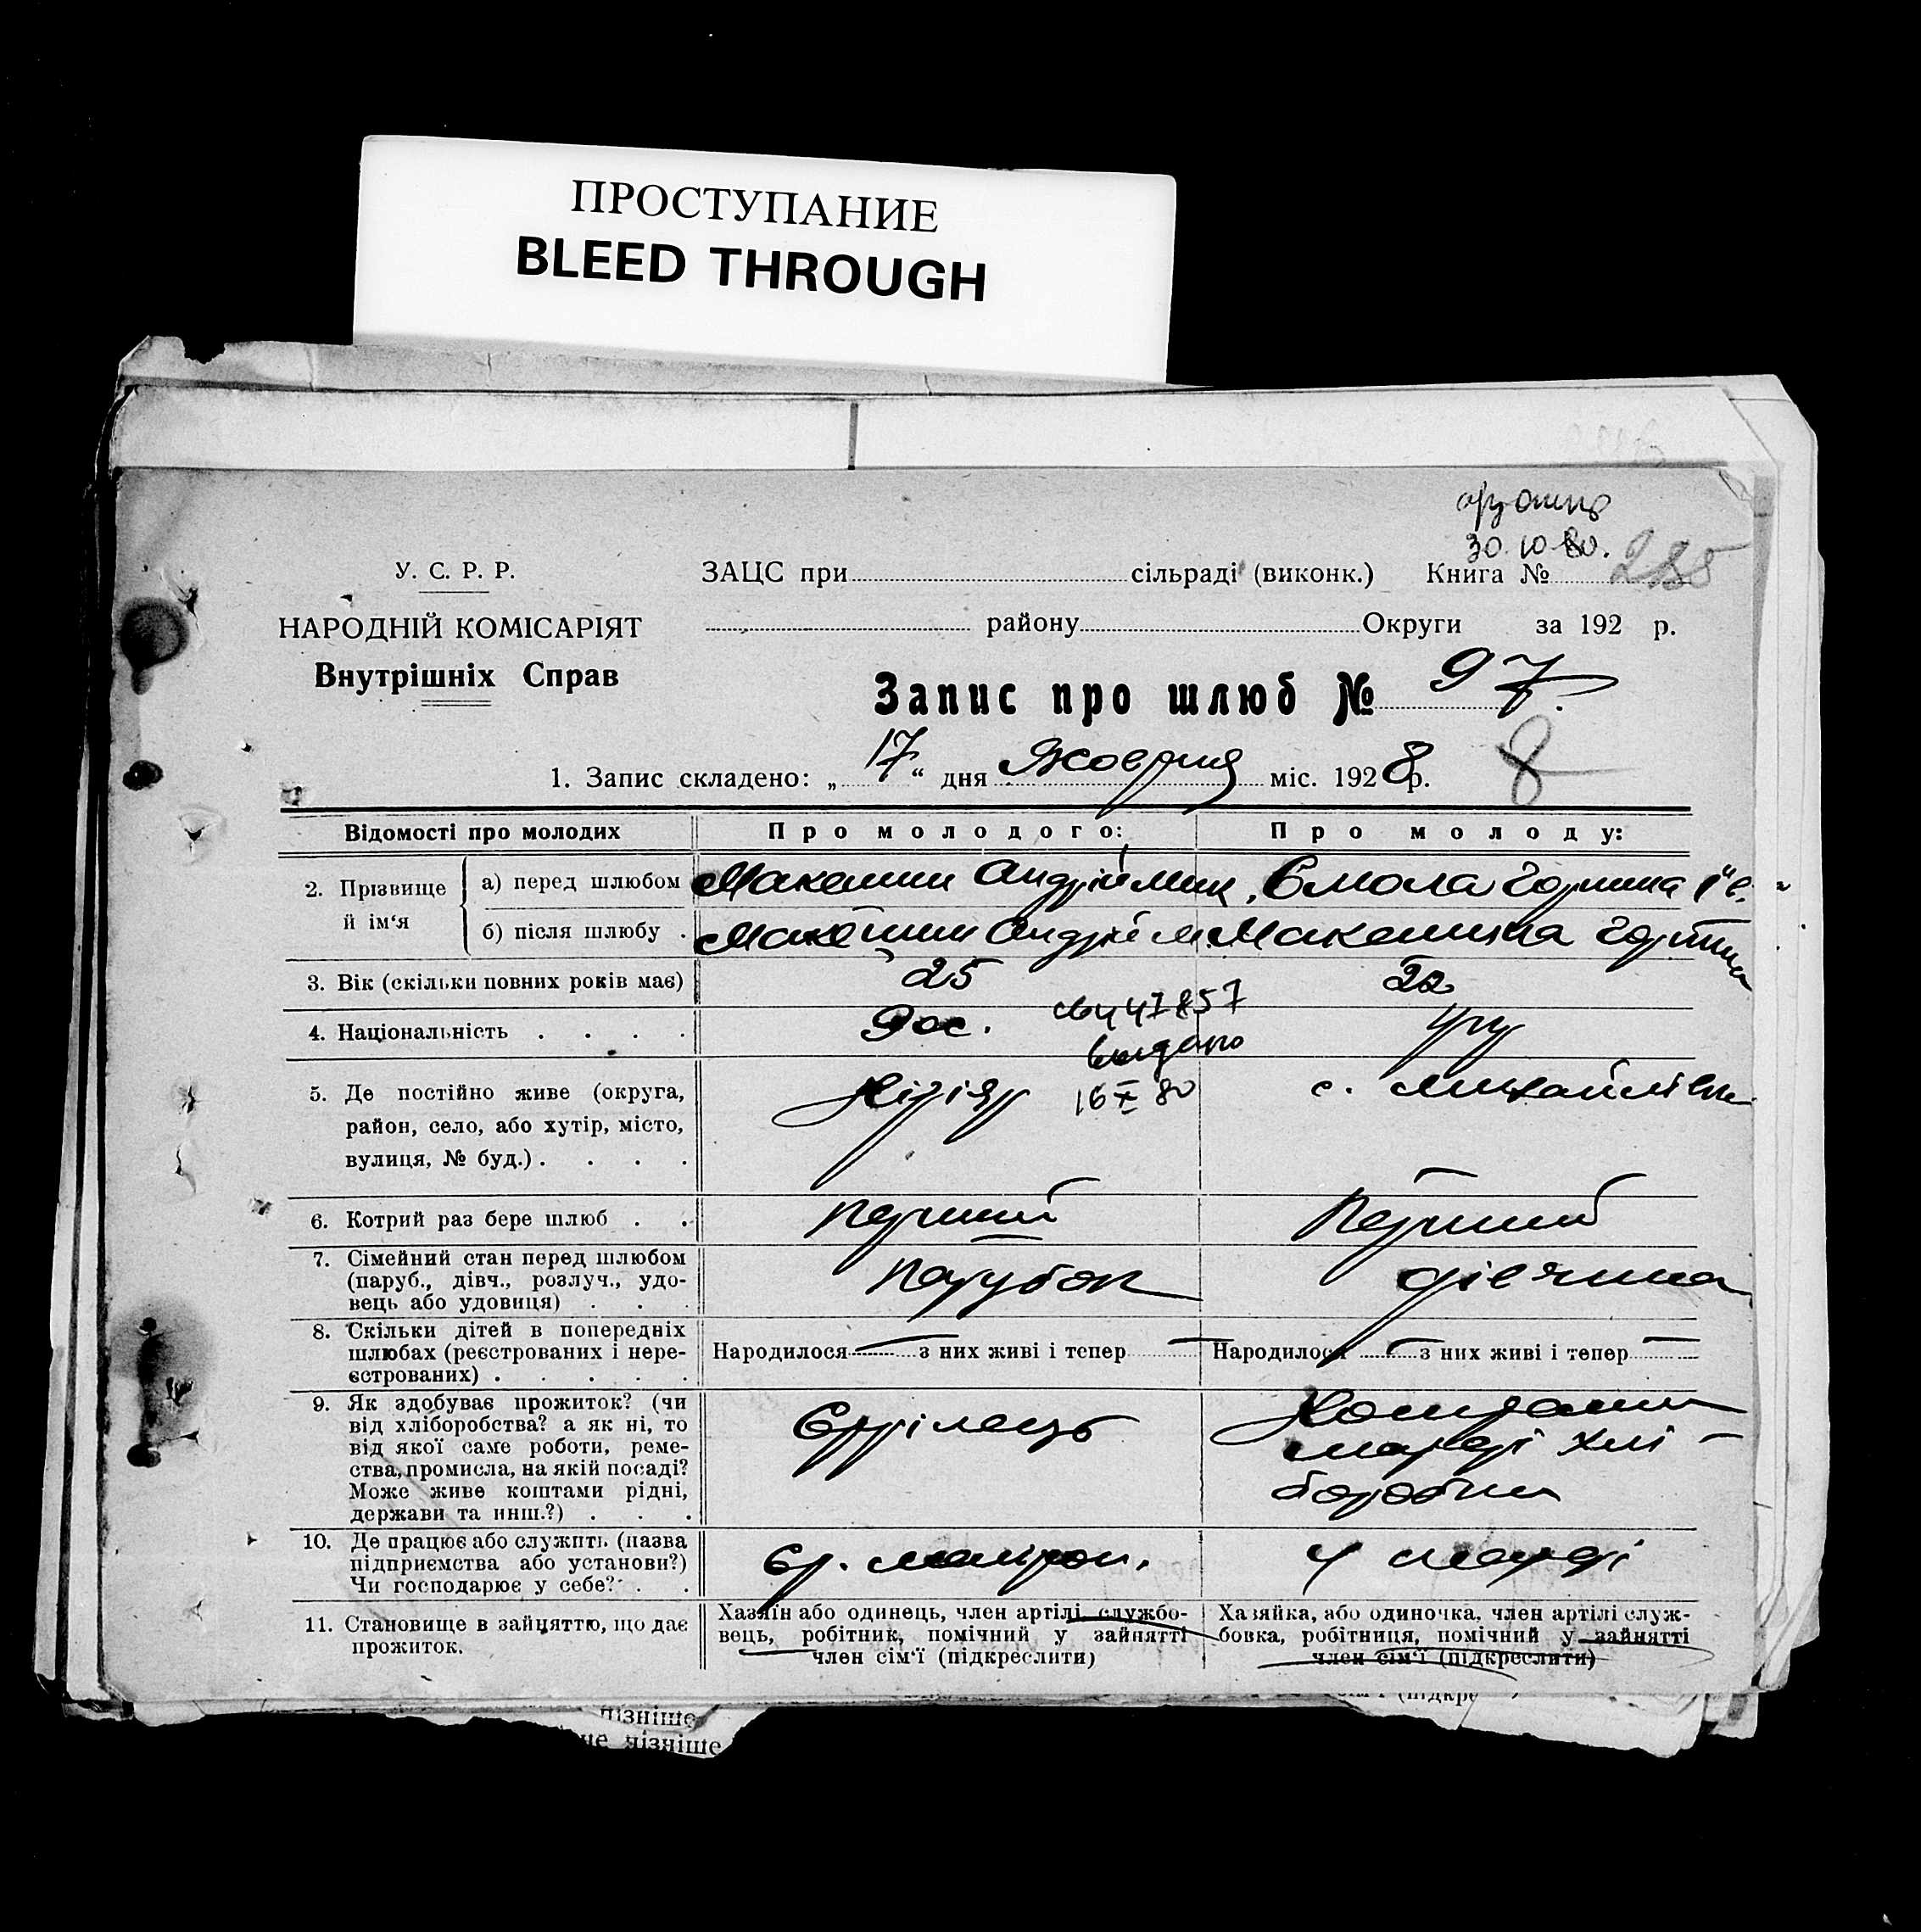 ПРОСТУПАНИЕ
BLEED THROUGH
30.10.80.
У. С. Р. Р.
ЗАЦС при сільраді (виконк.) Книга №
НАРОДНІЙ КОМІСАРІЯТ
району Округи за 192 р.
Внутрішніх Справ
Запис про шлюб № 97
1. Запис складено: „17“ дня Жовтня міс. 1928 р. 8
Відомості про молодих Про молодого: Про молоду:
2. Прізвище й ім‘я
а) перед шлюбом Макешин Андрій Мих. Смола Горпина
б) після шлюбу Макешин Андрій М. Макешина Горпина
3. Вік (скільки повних років має) 25 22
4. Національність Рос. Укр
видано
16 X 80
5. Де постійно живе (округа,
район, село, або хутір, місто,
вулиця, № буд.) с. Михайлівка
6. Котрий раз бере шлюб Перший Перший
7. Сімейний стан перед шлюбом
(паруб., дівч., розлуч., удо-
вець або удовиця) Парубок дівчина
8. Скільки дітей в попередніх
шлюбах (реєстрованих і нере-
єстрованих)
Народилося з них живі і тепер Народилося з них живі і тепер
9. Як здобуває прожиток? (чи
від хліборобства? а як ні, то
від якої саме роботи, реме-
ства, промисла, на якій посаді?
Може живе коштами рідні,
держави та инш.?)
Стрілець
Коштами
матері хлі-
боробки
10. Де працює або служить (назва
підприємства або установи?)
Чи господарює у себе?
У матері
11. Становище в зайняттю, що дає
прожиток.
Хазяїн або одинець, член артілі, службо-
вець, робітник, помічний у зайнятті
член сім‘ї (підкреслити)
Хазяйка, або одиночка, член артілі служ-
бовка, робітниця, помічний у зайнятті
член сім‘ї (підкреслити)
пізніше
пізніше